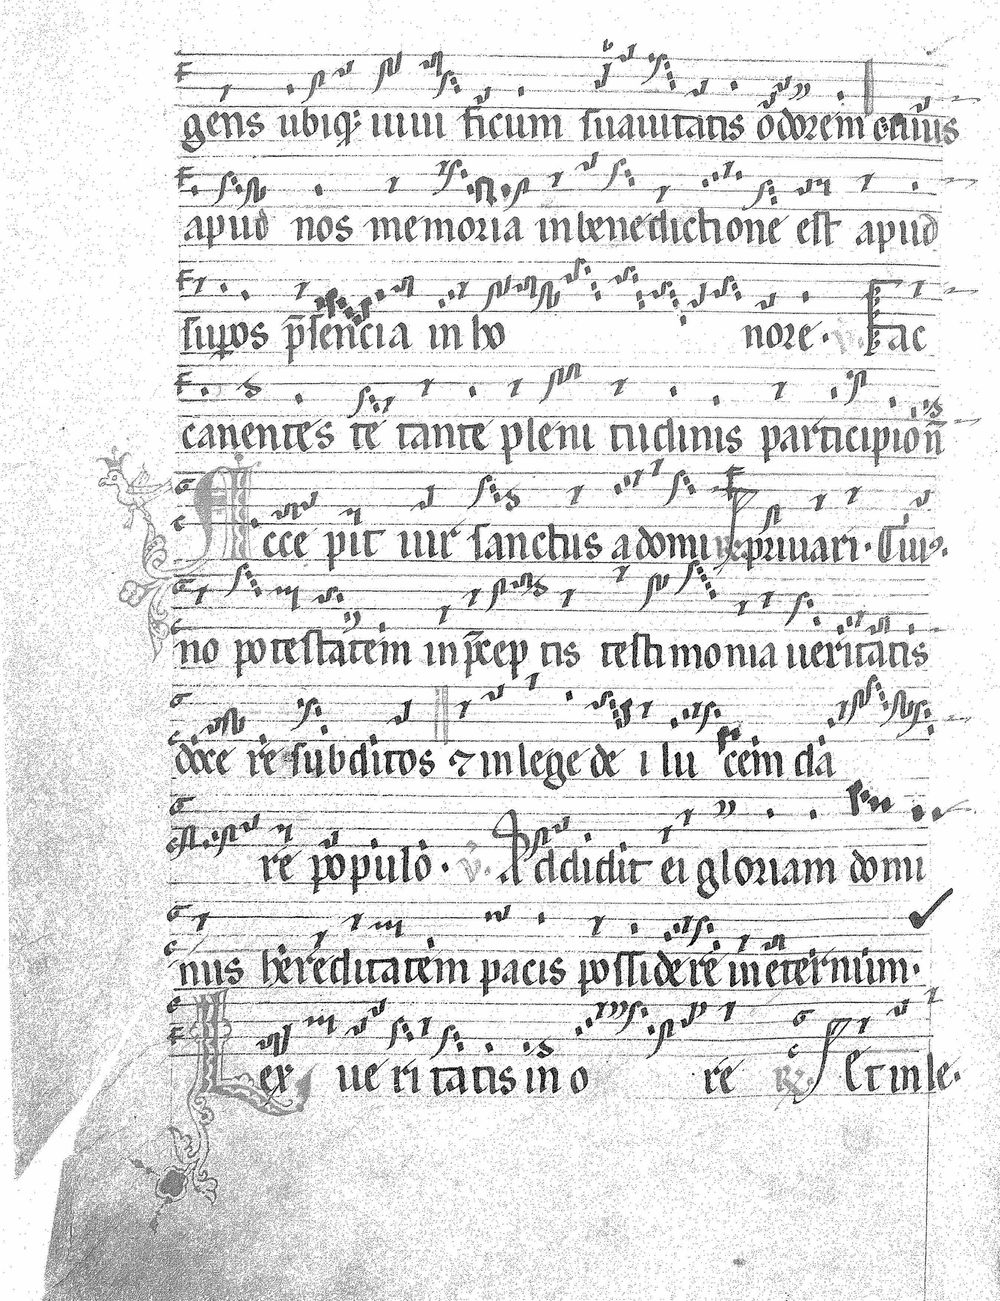 gens ubiq; uiui ficum suauitatis odorem cuius
apud nos memoria in benedictione est apud
suꝑos p̄sencia in ho nore . ℣. Fac
canentes te tante pleni tudinis participion̄
Acce pit uir sanctus a domi ℟. priuari . Cuiꝯ.
no potestatem in p̄cep tis testimonia ueritatis
doce re subditos ⁊ in lege de i lu cem da
re populo . ℣. Addidit ei gloriam domi
nus hereditatem pacis possidere in eternum .
Lex ue ri tatis in o re ℟. Et in le.